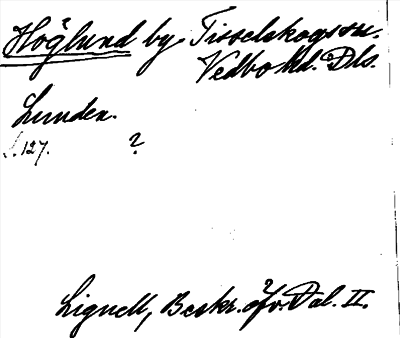 Höglund by Tisselskogs sn.
Vedbo hd. Dls.
Lunden.
S. 127. ?
Lignell, Beskr. öfv. Dal. II.